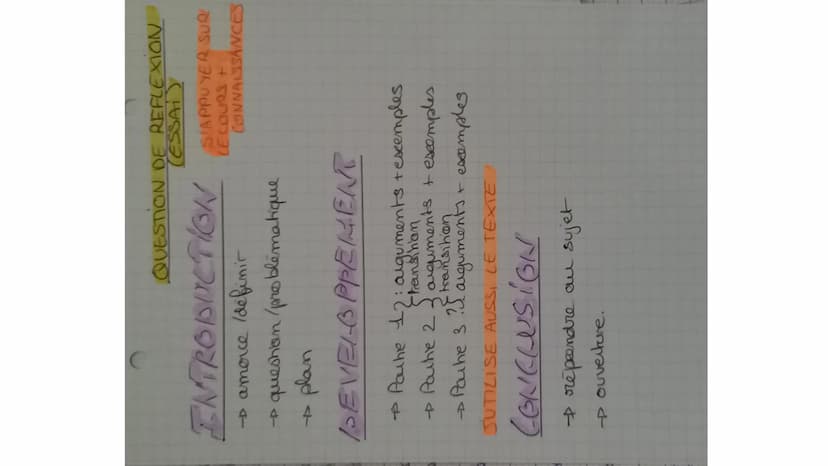 QUESTION DE REFLEXION
(ESSAI)
INTRODUCTION
S'APPUYER SUR
LE COURS +
CONNAISSANCES
→ amorce/définir
→ question/problématique
→ plan
DEVELOPPEMENT
→ Partie 1 : arguments + exemples
transition
→ Partie 2 arguments + exemples
transition
→ Partie 3 : arguments + exemples
UTILISE AUSSI LE TEXTE
CONCLUSION
→ répondre au sujet
→ ouverture.